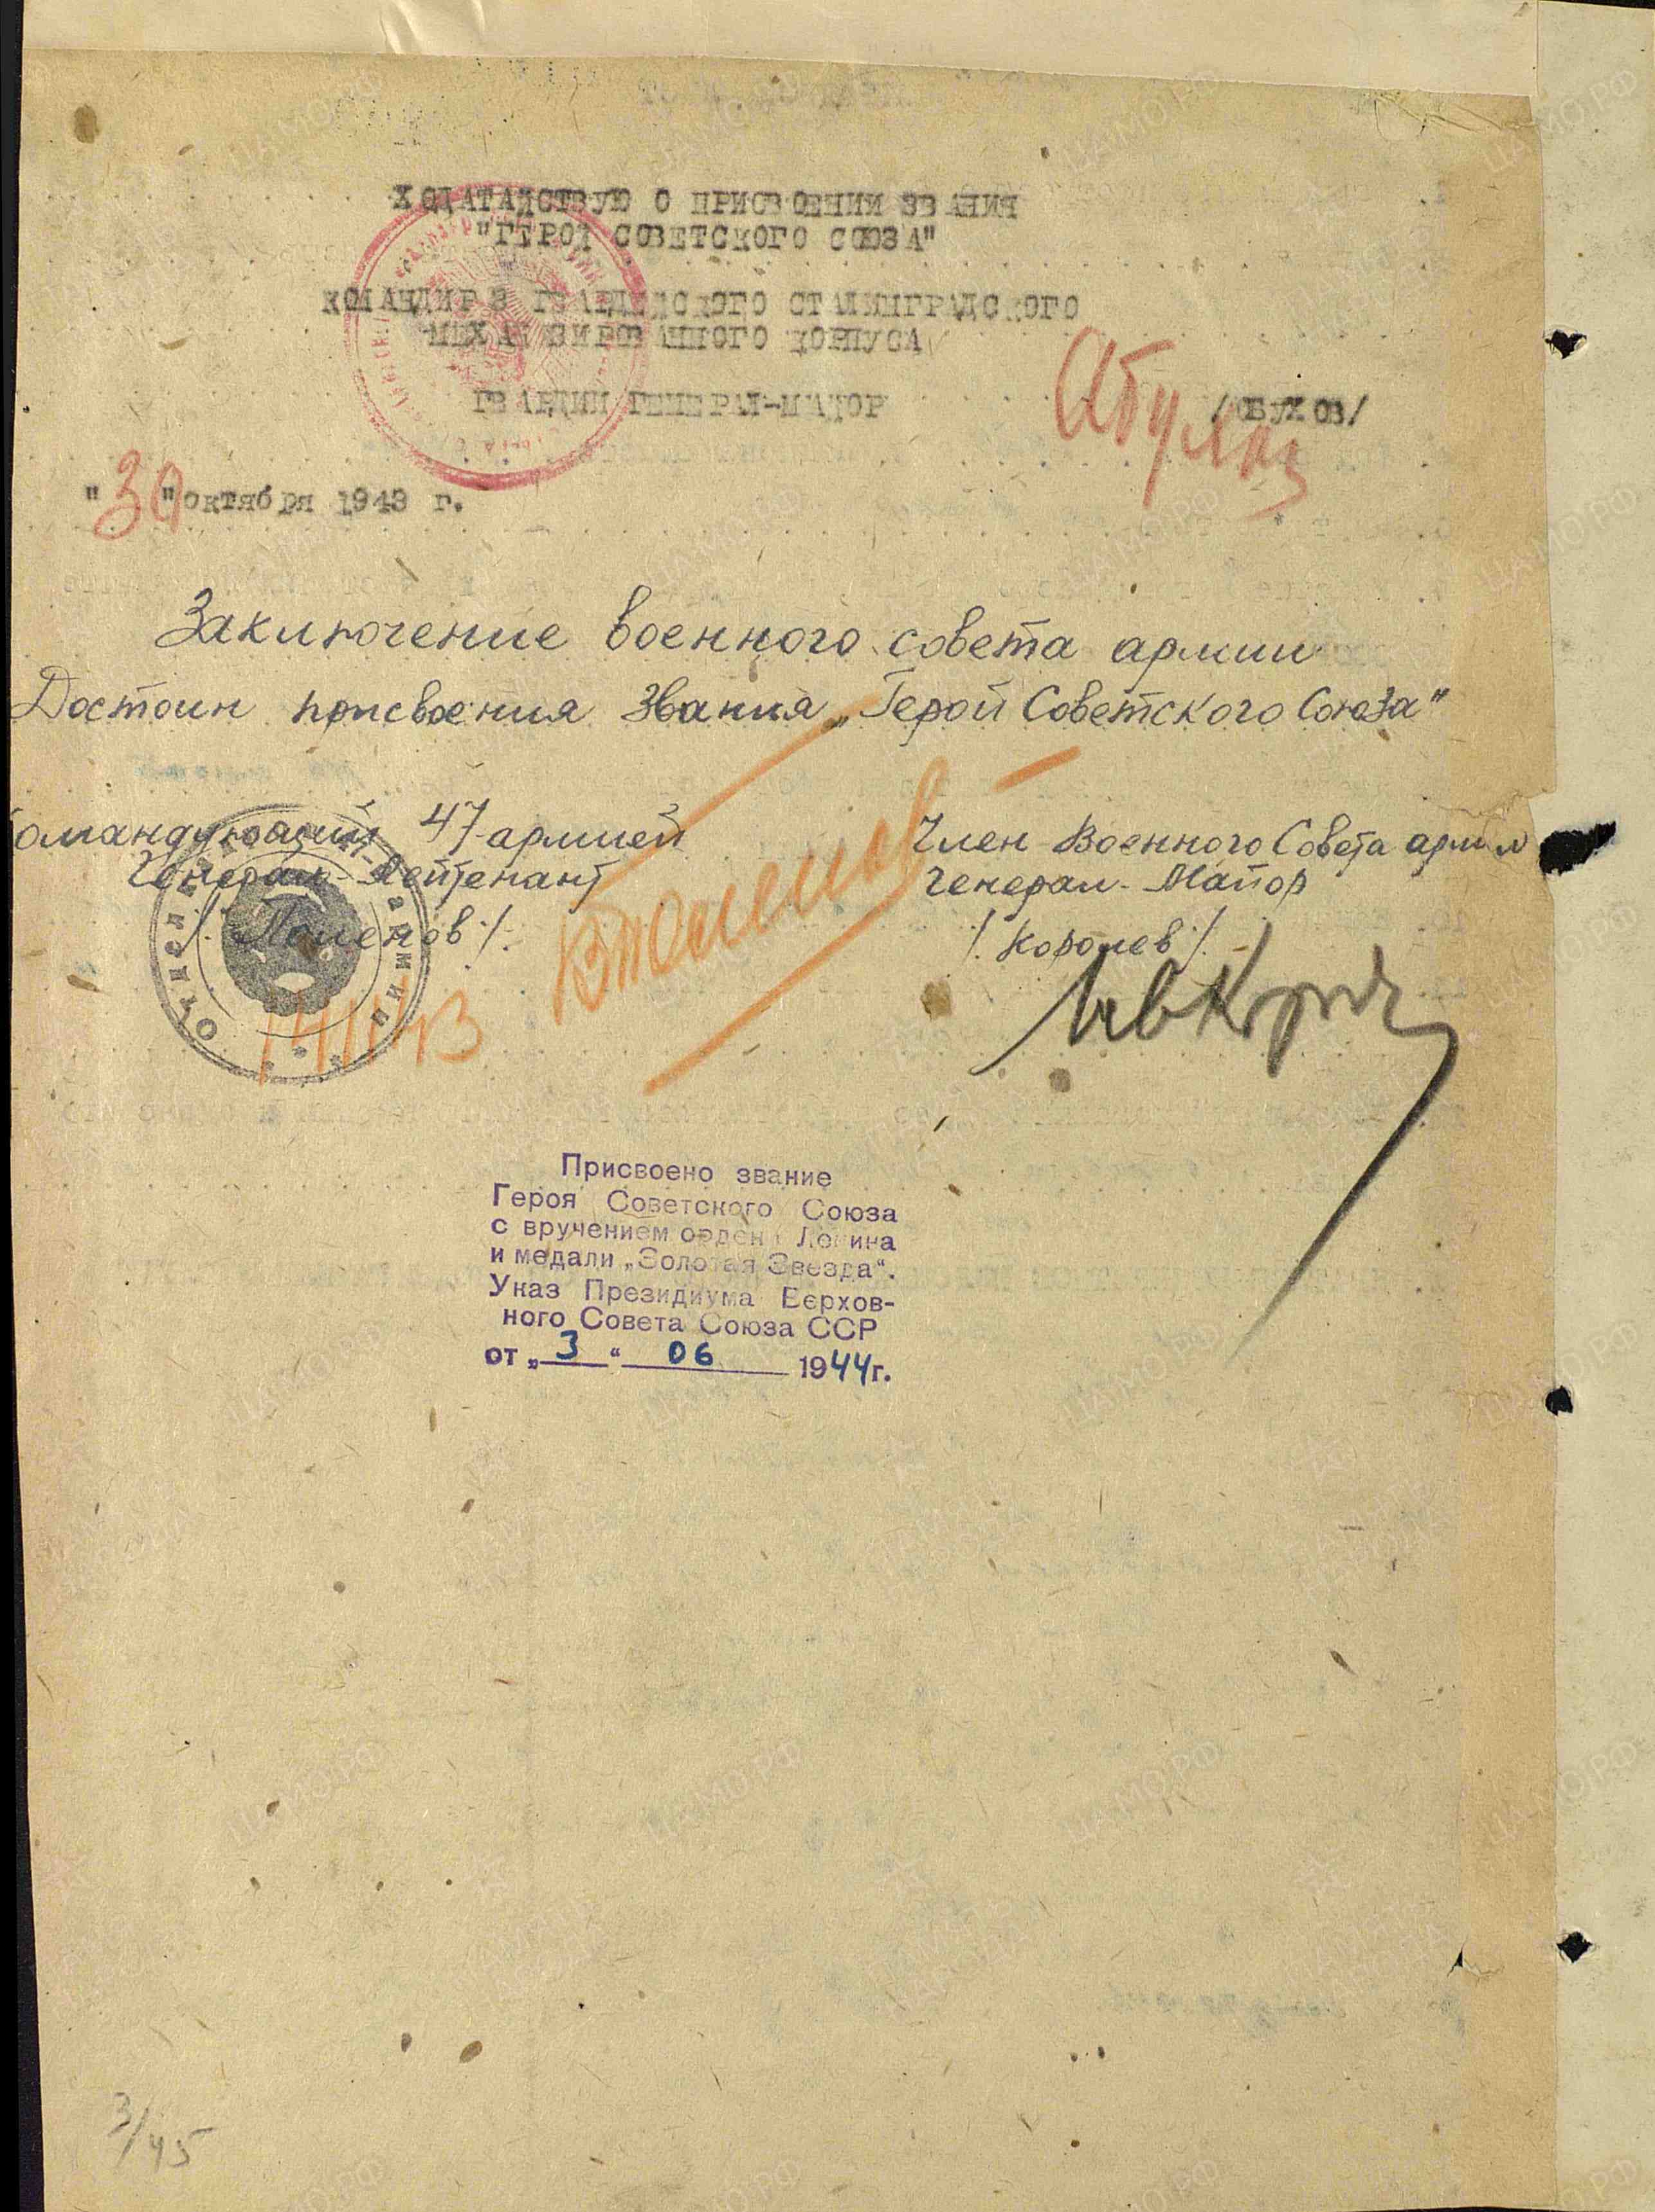 ХОДАТАЙСТВУЮ О ПРИСВОЕНИИ ЗВАНИЯ
"ГЕРОЙ СОВЕТСКОГО СОЮЗА"
КОМАНДИР 3 ГВАРДЕЙСКОГО СТАЛИНГРАДСКОГО
МЕХАНИЗИРОВАННОГО КОРПУСА
ГВАРДИИ ГЕНЕРАЛ-МАЙОР /ОБУХОВ/
"30" октября 1943 г.
Заключение военного совета армии
Достоин присвоения звания „Герой Советского Союза"
Командующий 47-армией
Генерал-Лейтенант
Член Военного Совета армии
Генерал-Майор
/Королев/
Присвоено звание
Героя Советского Союза
с вручением ордена Ленина
и медали „Золотая Звезда“.
Указ Президиума Верхов-
ного Совета Союза ССР
от „3“ 06 1944г.
3/45